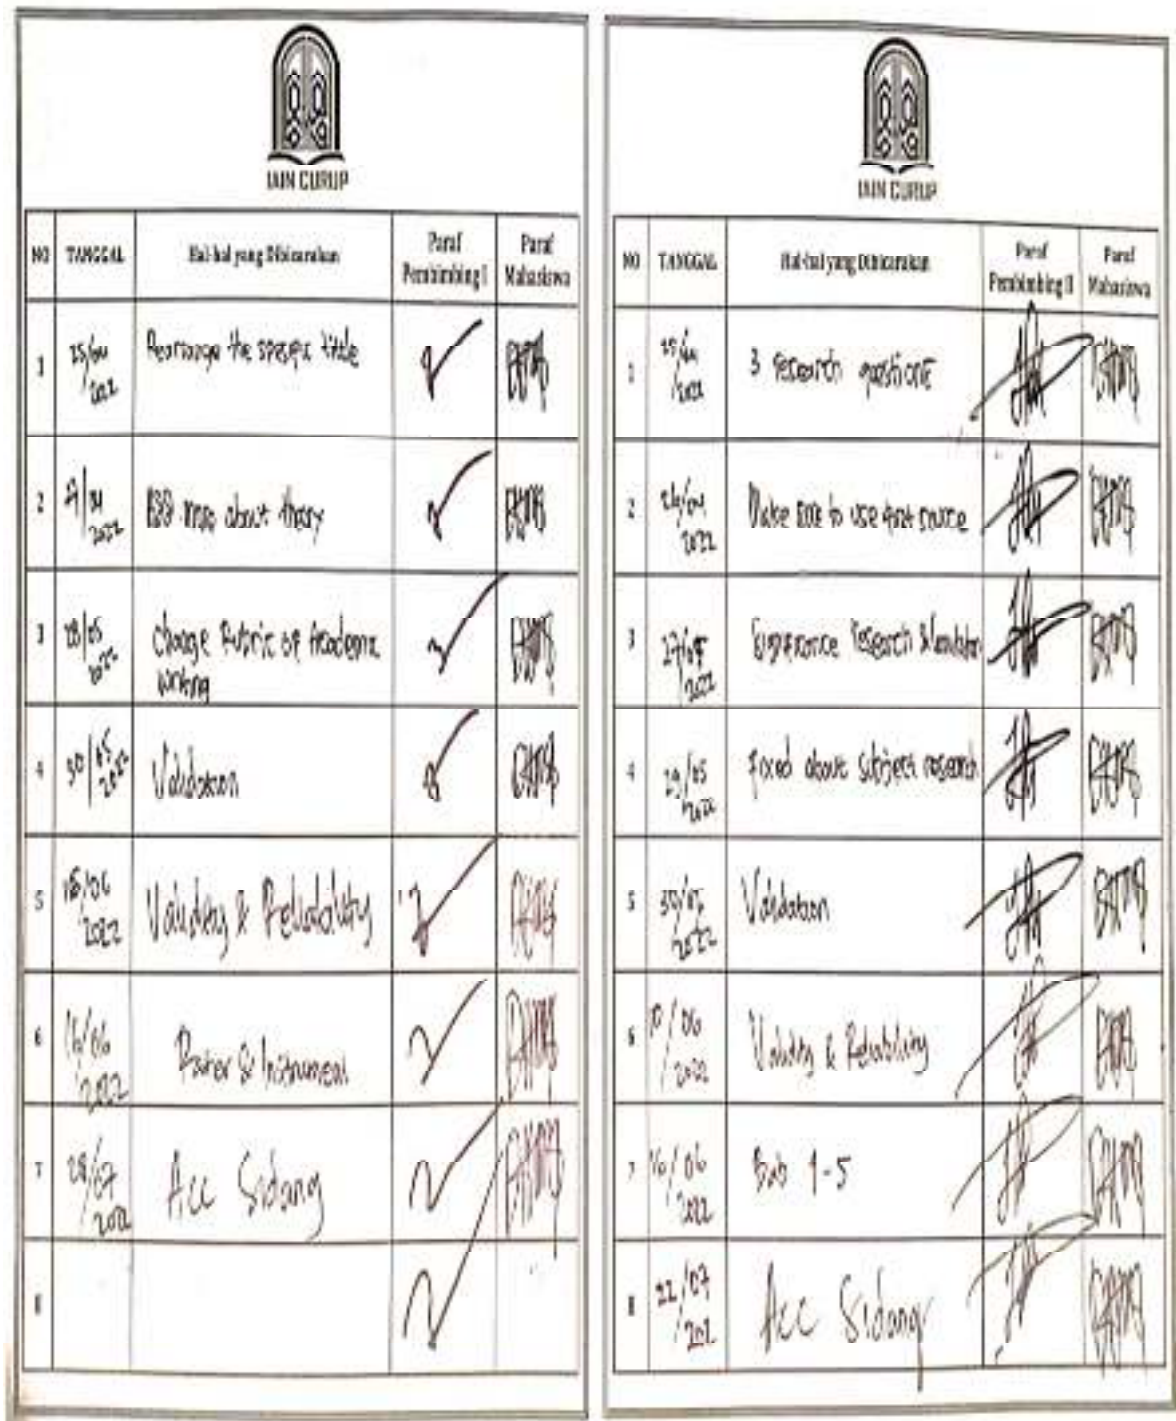 IAIN CURUP
NO TANGGAL Hal-hal yang Dibicarakan Paraf Pembimbing I Paraf Mahasiswa
1 25/04/2022 Rearrange the specific tittle
2 /04/2022 more about theory
3 28/05/2022 Change Rubric of Academic
writing
4 30/05/2022 Validation
5 /06/2022 Validity & Reliability
6 16/06/2022 & Instrument
7 28/07/2022 Acc Sidang
8
IAIN CURUP
NO TANGGAL Hal-hal yang Dibicarakan Paraf Pembimbing II Paraf Mahasiswa
1 25/04/2022 3 research questions
2 /04/2022 Make sure to use source
3 27/05/2022 Significance Research &
4 29/05/2022 Fixed about subject research
5 30/05/2022 Validation
6 /06/2022 Validity & Reliability
7 16/06/2022 Bab 1-5
8 22/07/202 Acc Sidang